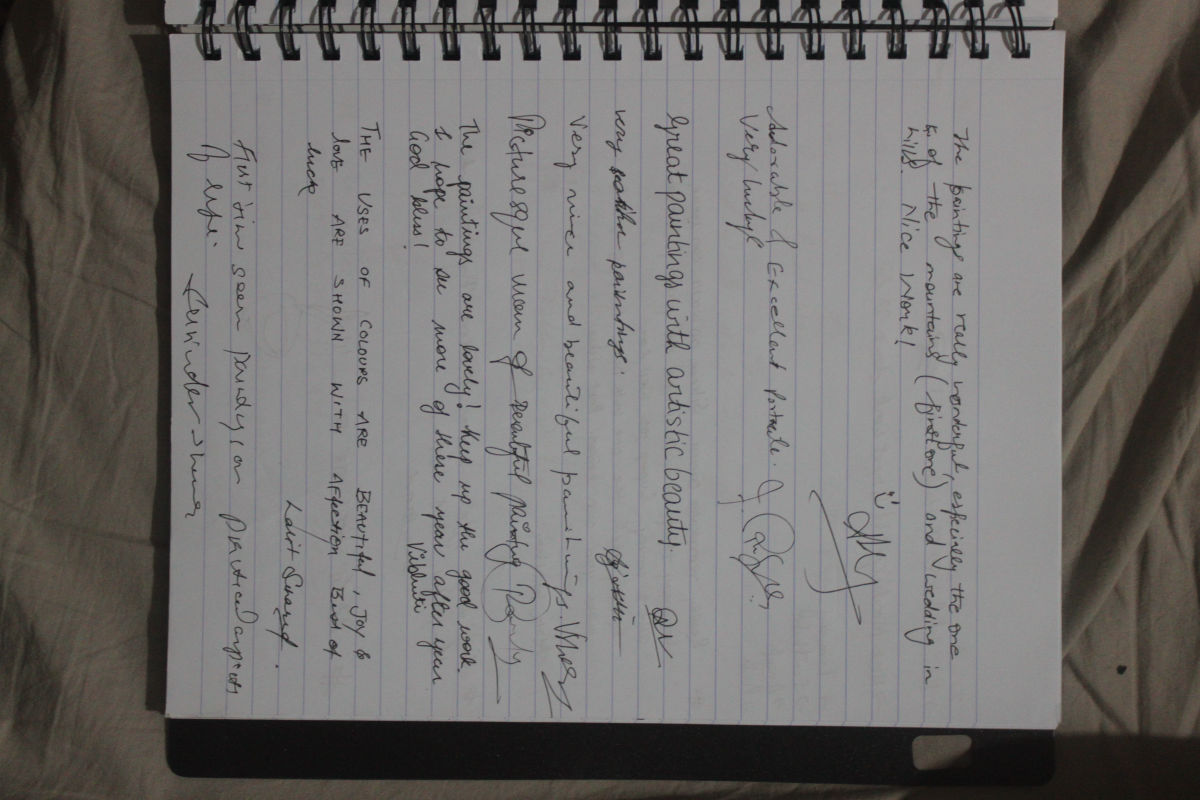 The paintings are really wonderful, especially the one
of the mountains (first one) and wedding in
Nice Work!
Adorable & Excellent Portraits.
Very lucky!
Great paintings with artistic beauty.
very paintings.
Very nice and beautiful paintings.
Picturesque of beautiful painting
The paintings are lovely! Keep up the good work.
I hope to see more of these year after year
God bless! Vibhuti
THE USES OF COLOURS ARE BEAUTIFUL, JOY &
LOVE ARE SHOWN WITH AFFECTION BEST OF
LUCK
Lalit
First time seen paintings on practical aspects
of life.